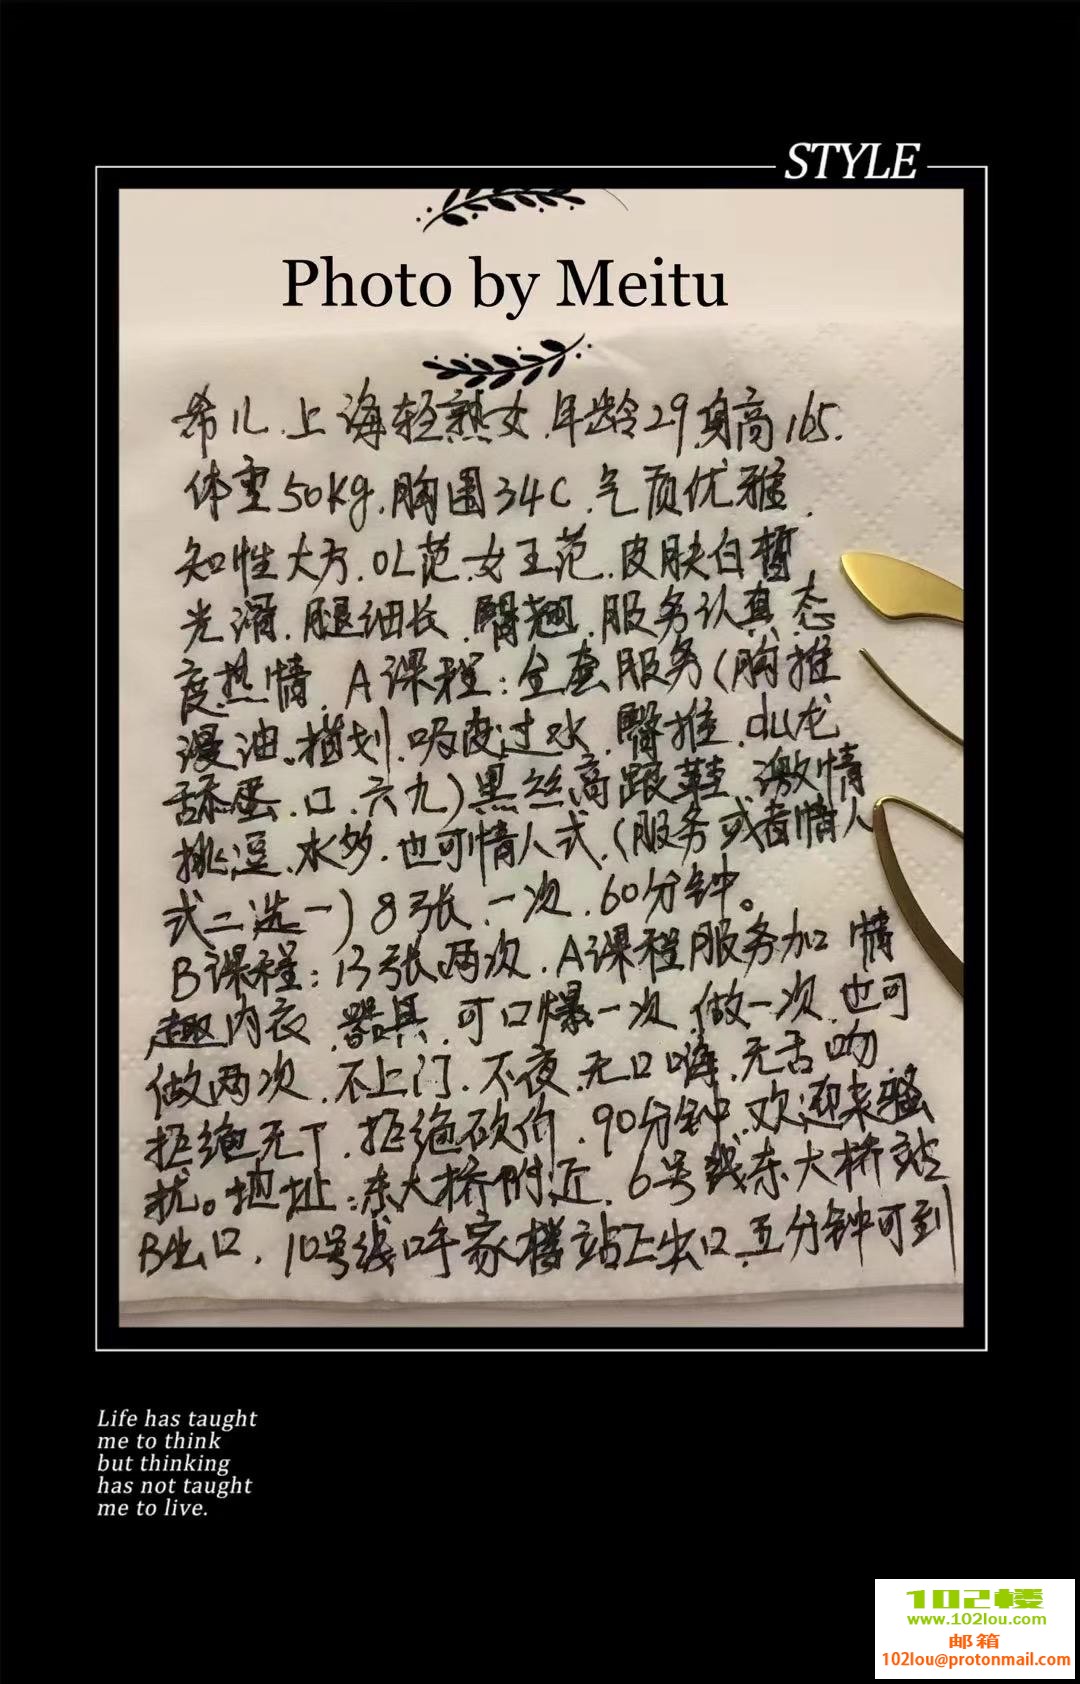 STYLE
Photo by Meitu
希儿.上海轻熟女.年龄29.身高165.
体重50kg.胸围34C.气质优雅.
知性大方.OL范.女王范.皮肤白皙
光滑.腿细长.臀翘.服务认真.态
度热情.A课程:全套服务(胸推
漫油.指划.吸皮过水.臀推.du龙
舔蛋.口.六九)黑丝高跟鞋.激情
挑逗.水多.也可情人式.(服务或者情人
式二选一)8张.一次.60分钟。
B课程:13张两次.A课程服务加情
趣内衣.器具.可口爆一次.做一次.也可
做两次.不上门.不夜.无口嗨.无舌吻
拒绝无T.拒绝砍价.90分钟.欢迎来骚
扰。地址:东大桥附近.6号线东大桥站
B出口.10号线呼家楼站出口.五分钟可到
Life has taught
me to think
but thinking
has not taught
me to live.
102楼
www.102lou.com
邮箱
102lou@protonmail.com